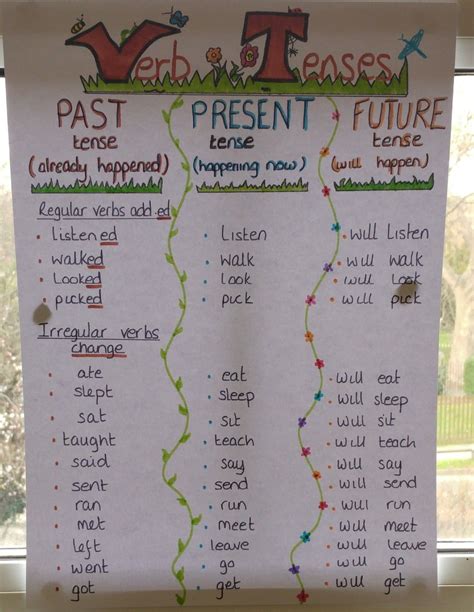 Verb Tenses
PAST PRESENT FUTURE
tense tense tense
(already happened) (happening now) (will happen)
Regular verbs add ed
• listened • listen • will listen
• walked • walk • will walk
• looked • look • will look
• picked • pick • will pick
Irregular verbs
change
• ate • eat • will eat
• slept • sleep • will sleep
• sat • sit • will sit
• taught • teach • will teach
• said • say • will say
• sent • send • will send
• ran • run • will run
• met • meet • will meet
• left • leave • will leave
• went • go • will go
• got • get • will get